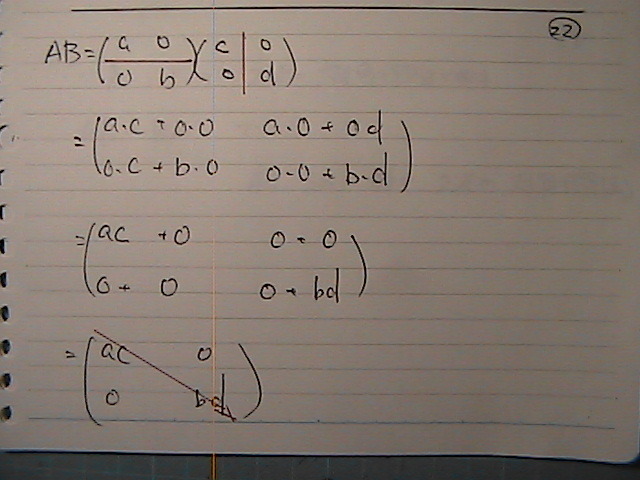 22
AB=(a 0 / 0 b)(c 0 / 0 d)
=(a·c + 0·0   a·0 + 0d
0·c + b·0   0·0 + b·d)
=(ac + 0   0 + 0
0 + 0   0 + bd)
=(ac   0
0   bd)